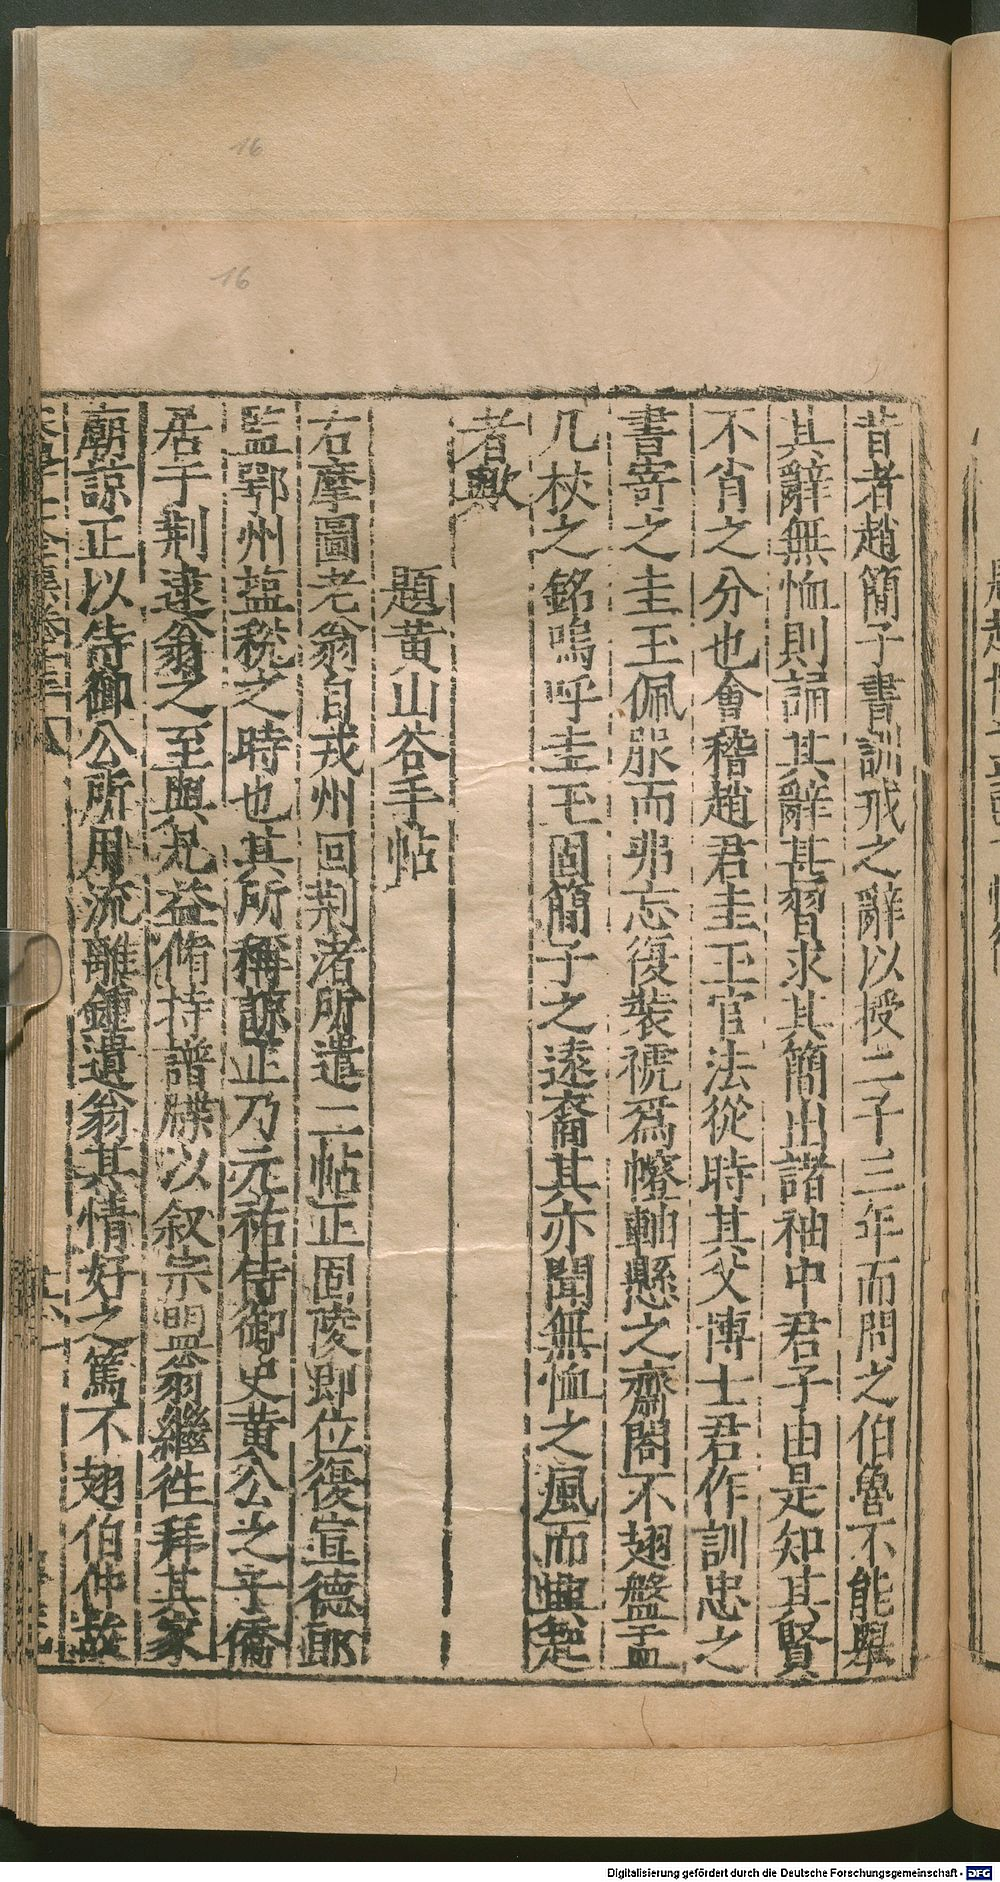 昔者趙簡子書訓戒之辭以授二子三年而問之伯魯不能舉
其辭無恤則誦其辭甚習求其簡出諸袖中君子由是知其賢
不肖之分也會稽趙君圭玉官法從時其父博士君作訓忠之
書寄之圭玉佩服而弗忘復裝褫爲幢軸懸之齋閣不翅盤盂
几杖之銘嗚呼圭玉固簡子之遠裔其亦聞無恤之風而興起
者歟
題黄山谷手帖
右摩圍老翁自戎州回荆渚所遣二帖正固陵即位復宣德郎
監鄂州塩稅之時也其所稱諒正乃元祐侍御史黄公之子僑
居于荆逮翁之至與凡益脩持譜牒以叙宗盟翁繼徃拜其家
廟諒正以侍御公所用流離鍾遺翁其情好之篤不翅伯仲故
16
16
Digitalisierung gefördert durch die Deutsche Forschungsgemeinschaft - DFG